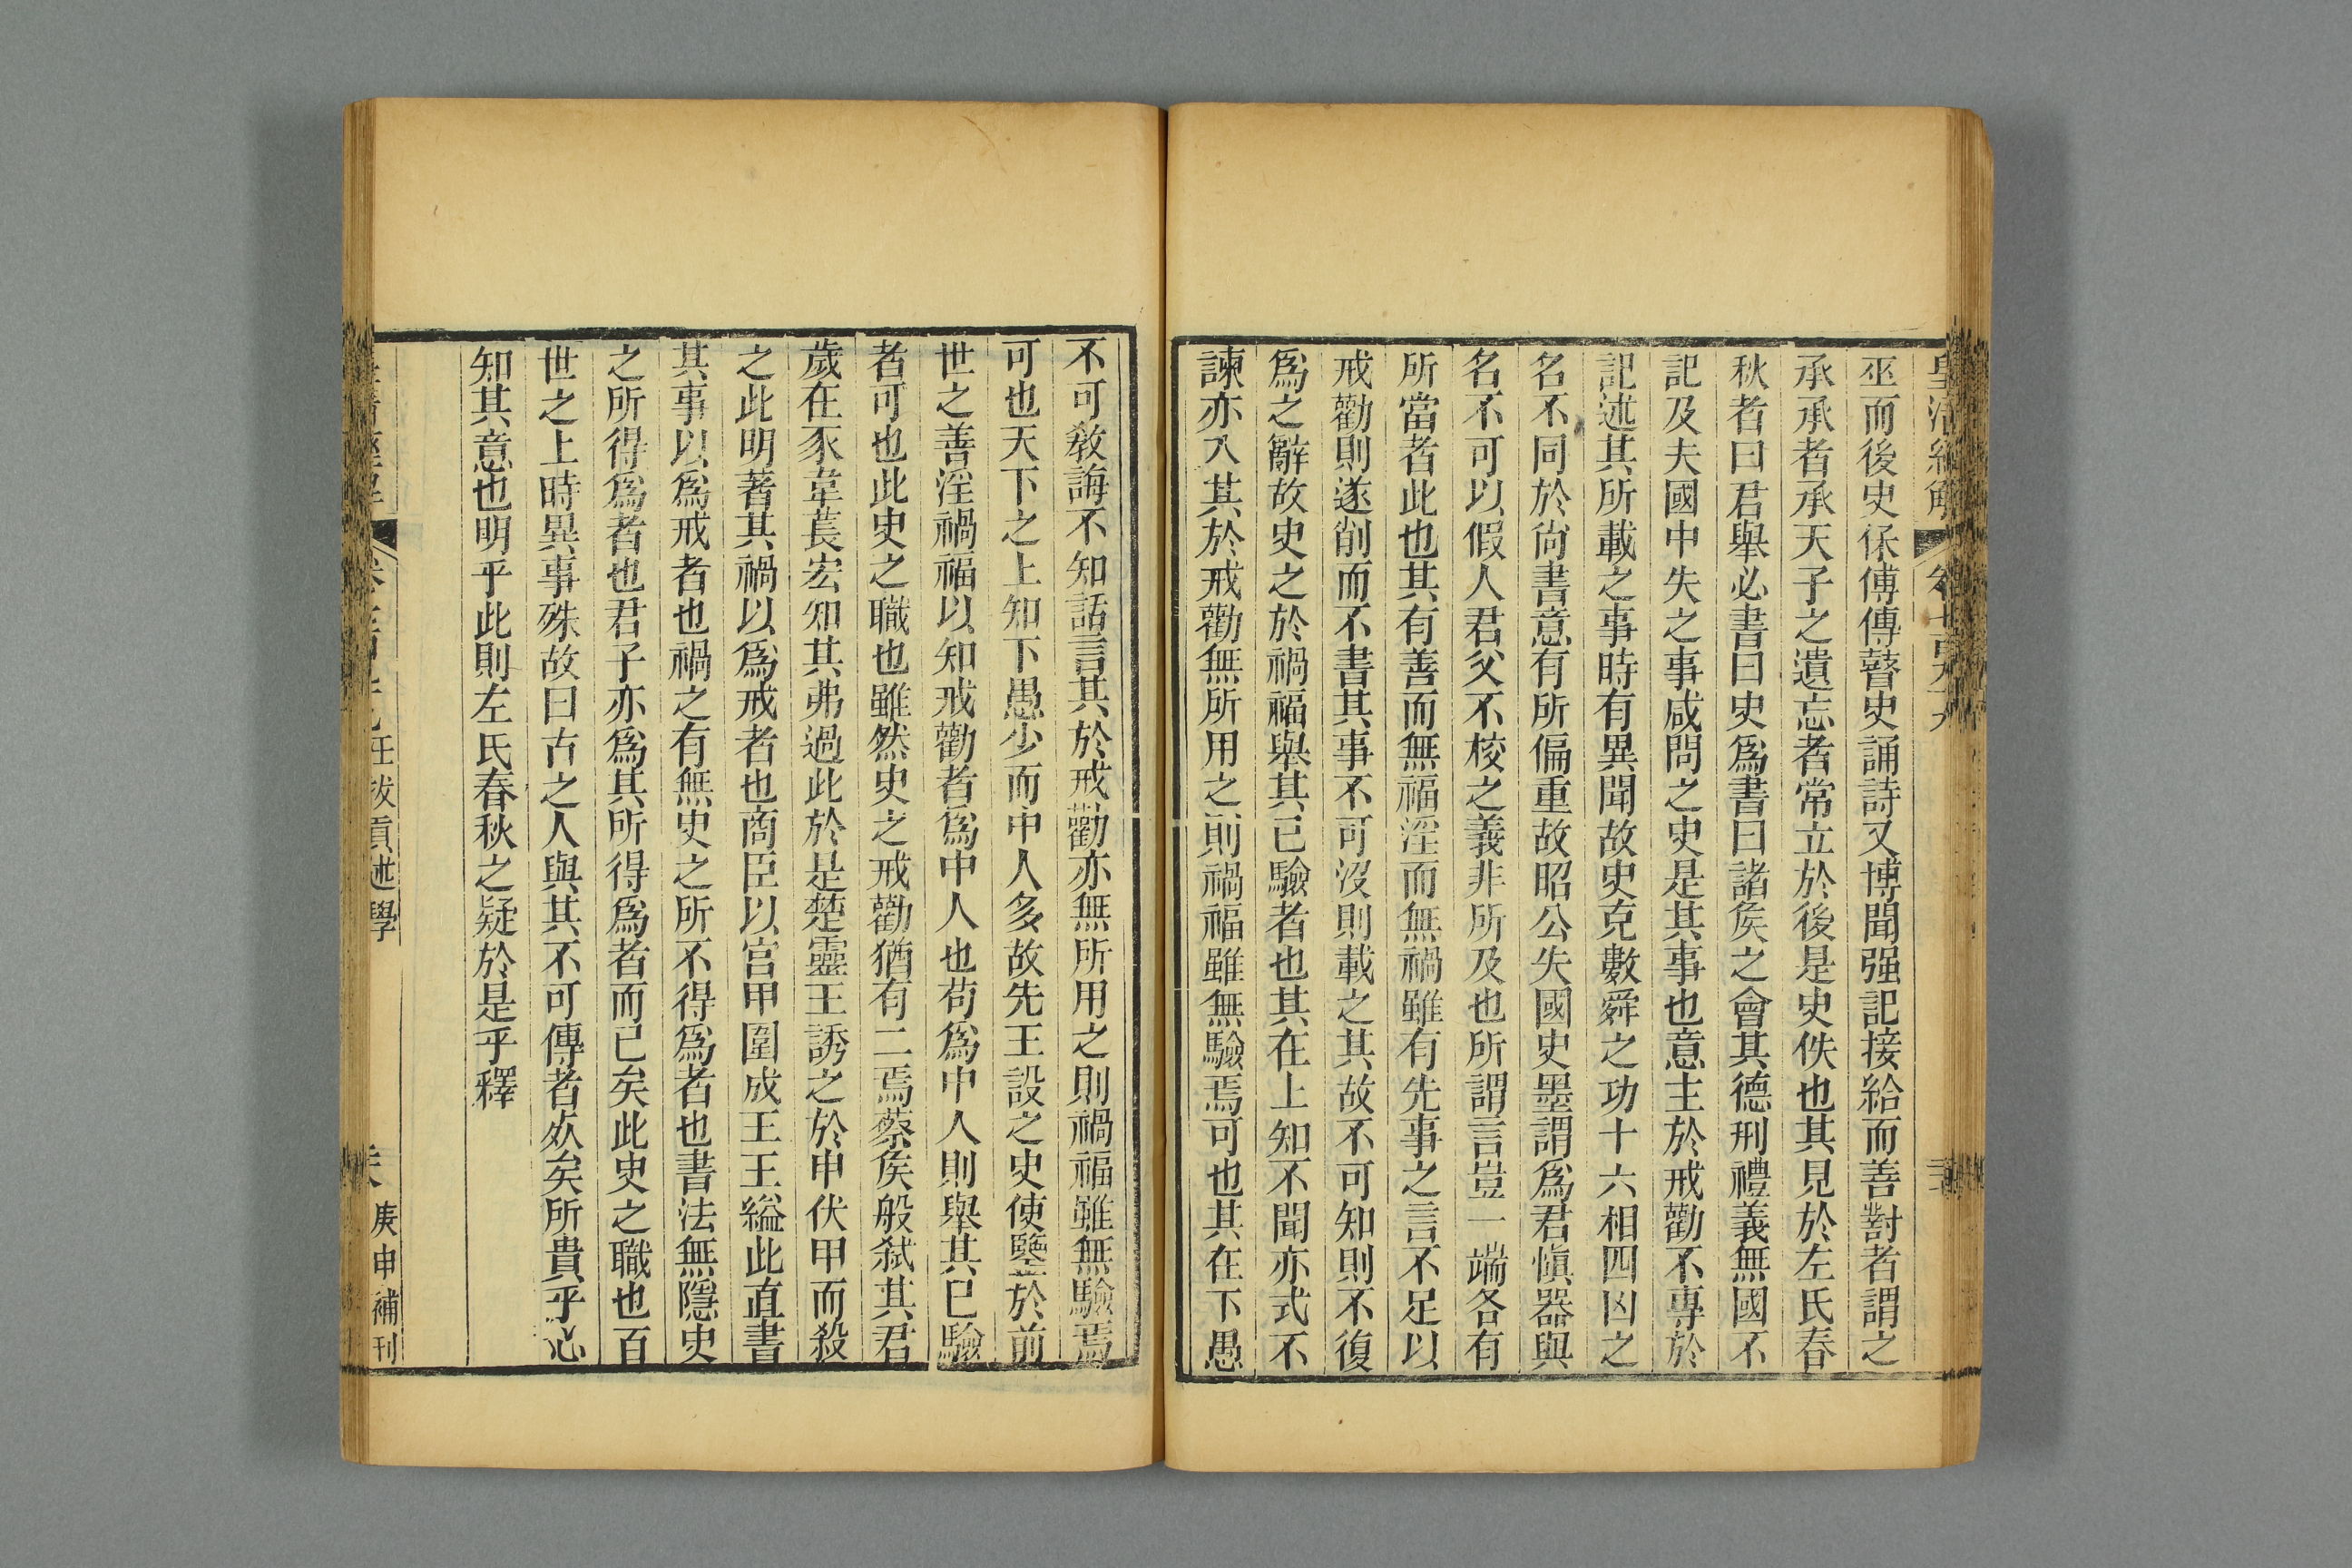 巫而後史保傅傅瞽史誦詩又博聞强記接給而善對者謂之
承承者承天子之遺忘者常立於後是史佚也其見於左氏春
秋者曰君舉必書曰史爲書曰諸矦之會其德刑禮義無國不
記及夫國中失之事咸問之史是其事也意主於戒勸不專於
記述其所載之事時有異聞故史克數舜之功十六相四凶之
名不同於尙書意有所偏重故昭公失國史墨謂爲君愼器與
名不可以假人君父不校之義非所及也所謂言豈一端各有
所當者此也其有善而無福淫而無禍雖有先事之言不足以
戒勸則遂削而不書其事不可沒則載之其故不可知則不復
爲之辭故史之於禍福舉其已驗者也其在上知不聞亦式不
諫亦入其於戒勸無所用之則禍福雖無驗焉可也其在下愚
不可敎誨不知話言其於戒勸亦無所用之則禍福雖無驗焉
可也天下之上知下愚少而中人多故先王設之史使鑒於前
世之善淫禍福以知戒勸者爲中人也苟爲中人則舉其已驗
者可也此史之職也雖然史之戒勸猶有二焉蔡矦般弑其君
歲在豕韋萇宏知其弗過此於是楚靈王誘之於申伏甲而殺
之此明著其禍以爲戒者也商臣以宮甲圍成王王縊此直書
其事以爲戒者也禍之有無史之所不得爲者也書法無隱史
之所得爲者也君子亦爲其所得爲者而已矣此史之職也百
世之上時異事殊故曰古之人與其不可傳者𣦸矣所貴乎心
知其意也明乎此則左氏春秋之疑於是乎釋
汪拔貢述學
庚申補刊